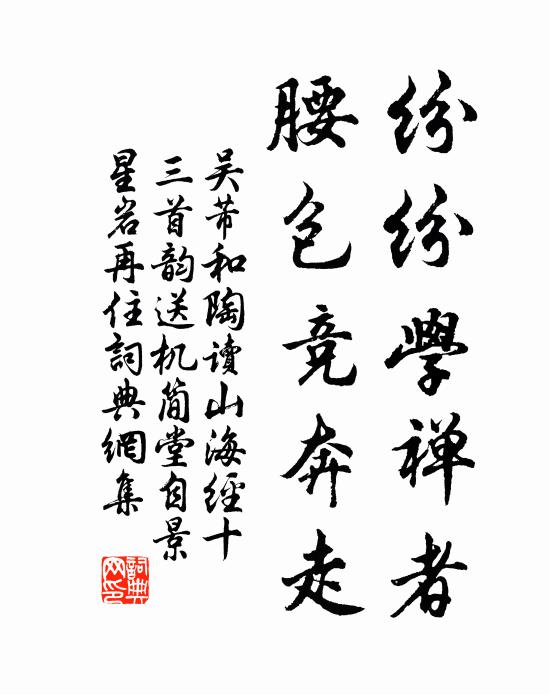 纷纷學禅者
腰包竞奔走
吴芾和陶讀山海經十
三首韵送机简堂自景
星岩再住詞典網集
詞典网印